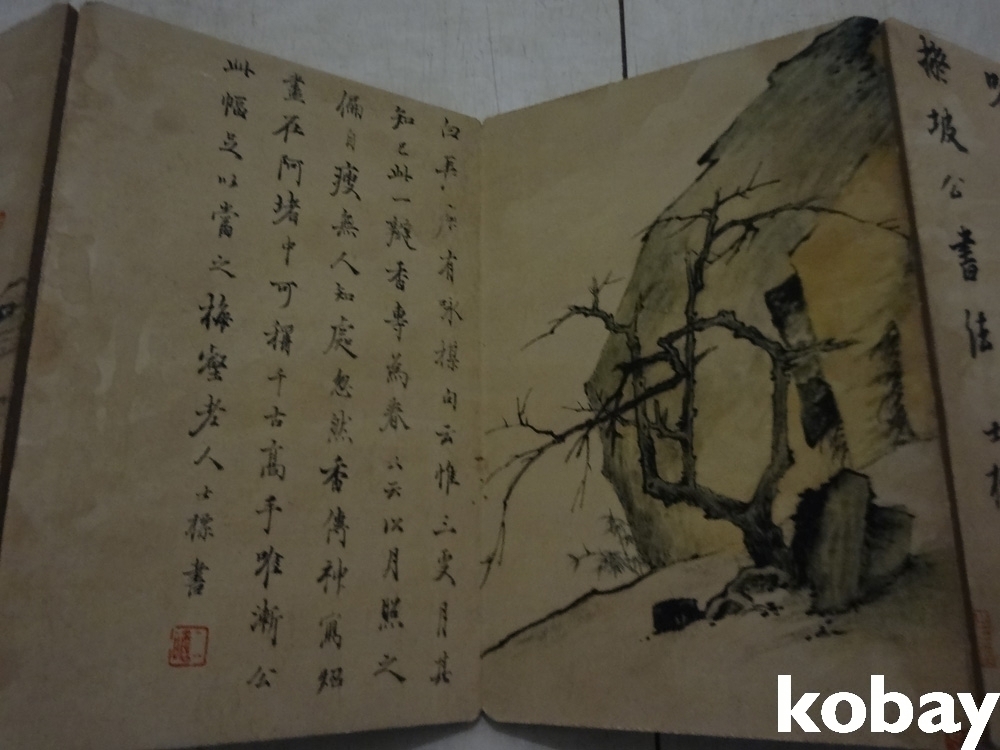 明
坡公書法
有咏楳句云惟三更月其
知己此一瓣香專為春又云以月照之
偏自瘦無人知處忽然香傳神寫照
盡在阿堵中可稱千古高手唯漸公
此幅足以當之梅壑老人士標書
kobay